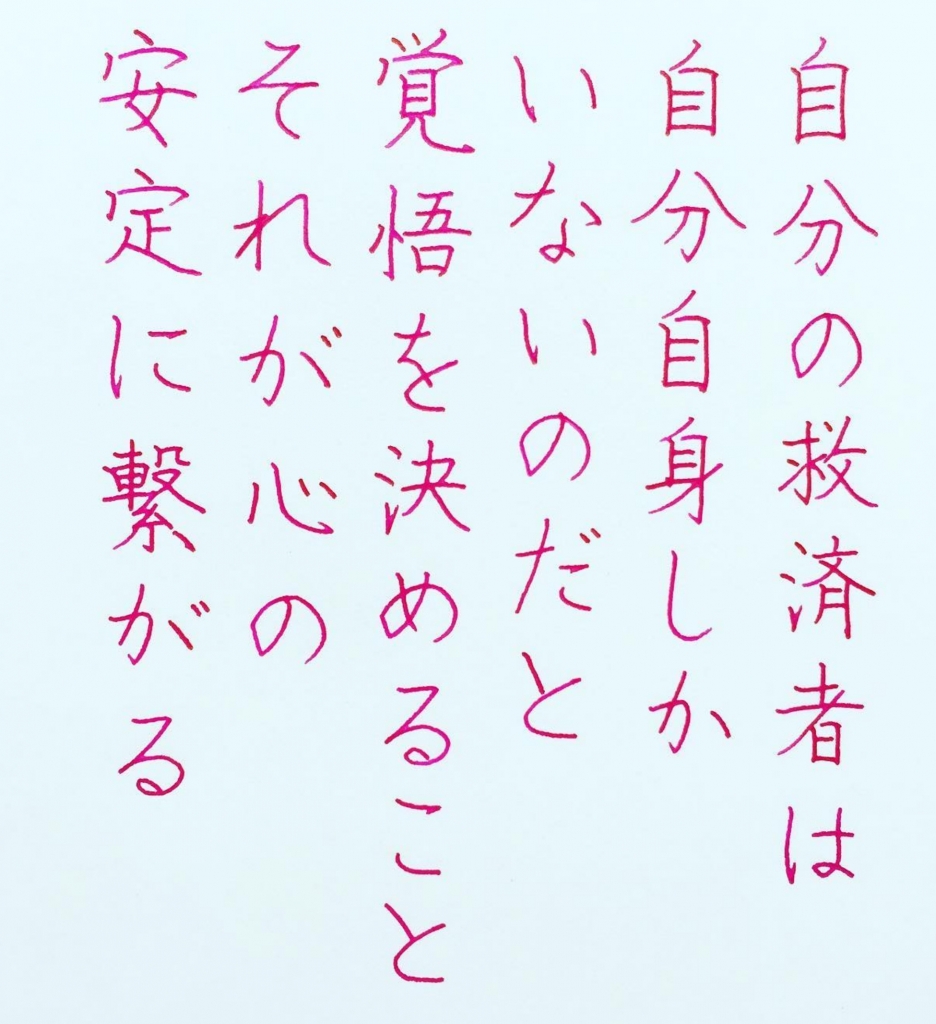 自分の救済者は
自分自身しか
いないのだと
覚悟を決めること
それが心の
安定に繋がる